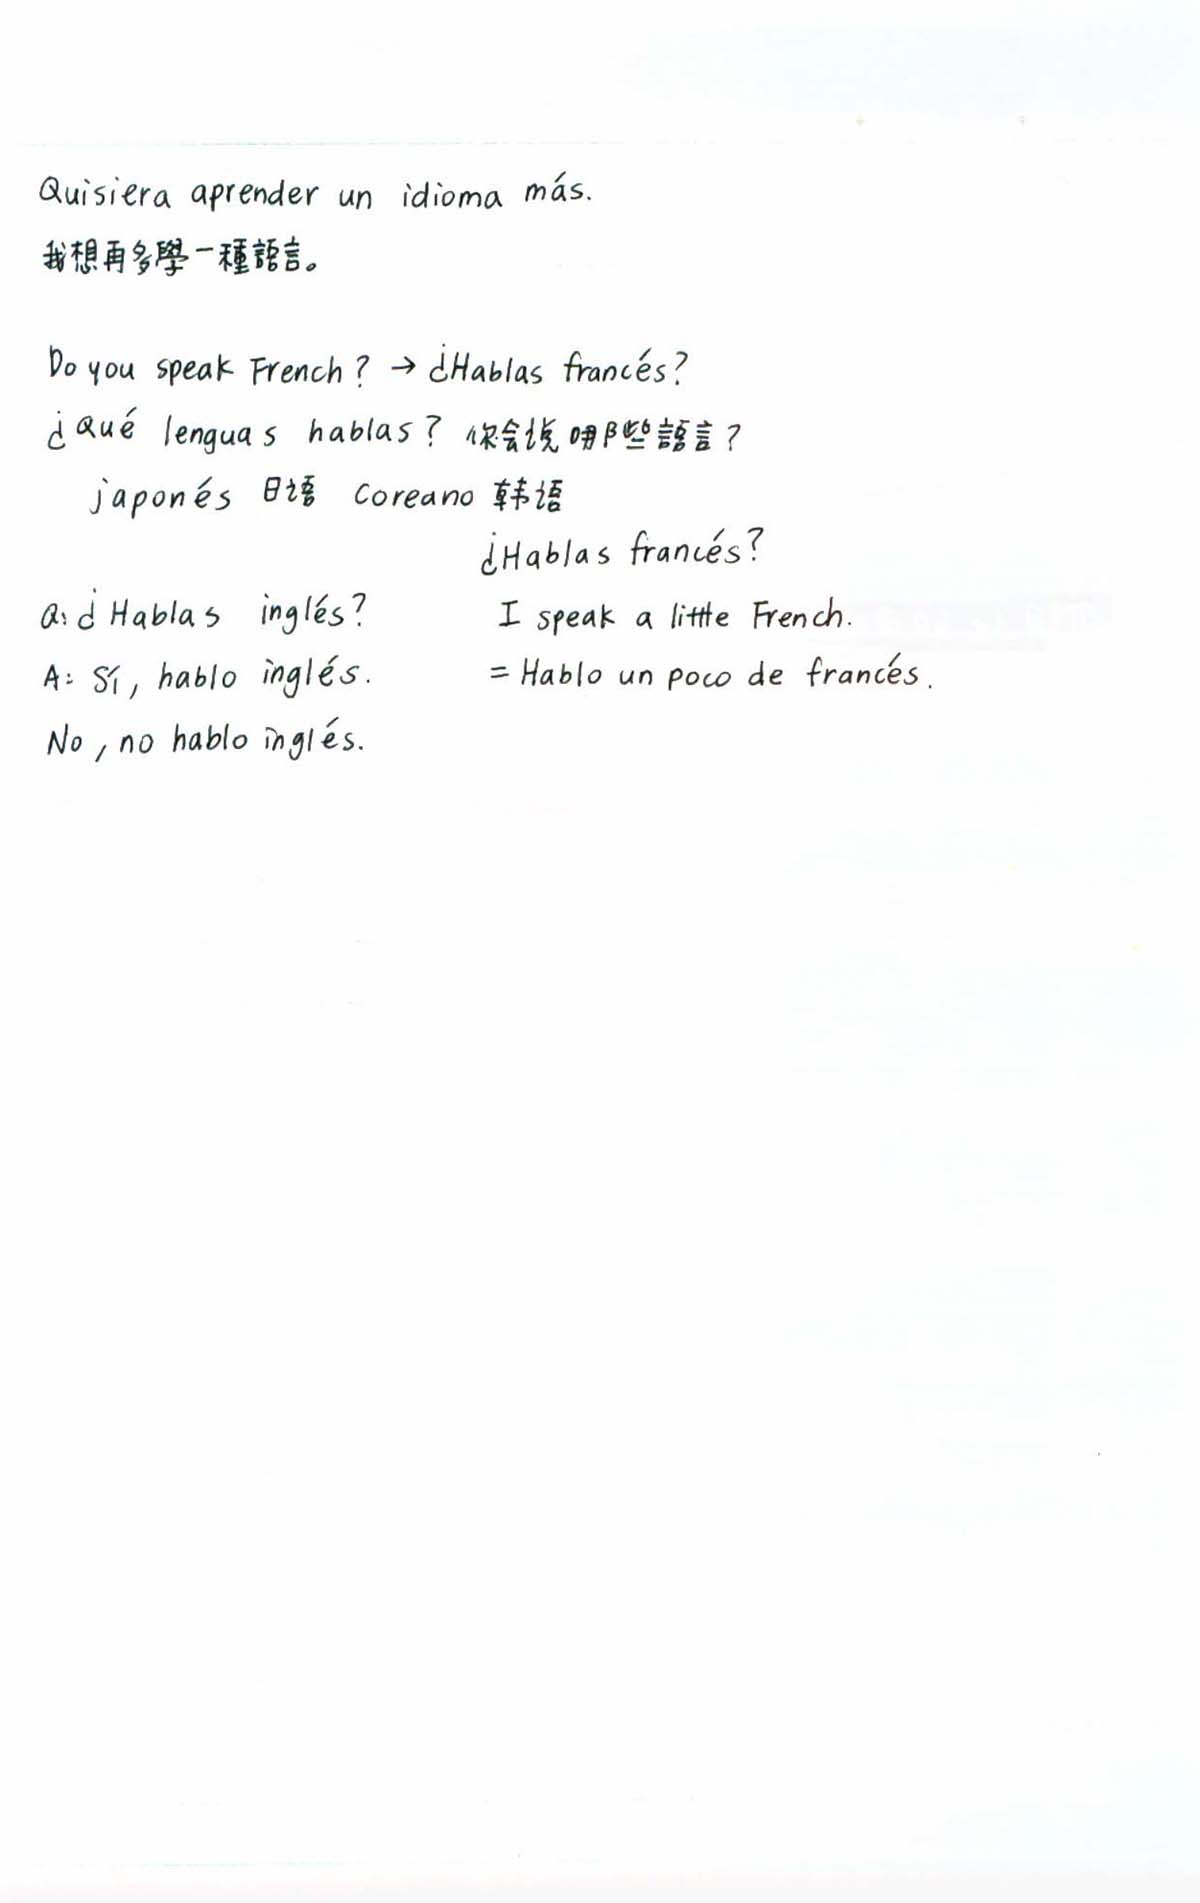 Quisiera aprender un idioma más.
我想再多學一種語言。
Do you speak French? → ¿Hablas francés?
¿Qué lenguas hablas? 你会说哪些語言?
japonés 日语 Coreano 韩语
¿Hablas francés?
Q: ¿Hablas inglés? I speak a little French.
A: Sí, hablo inglés. = Hablo un poco de francés.
No, no hablo inglés.